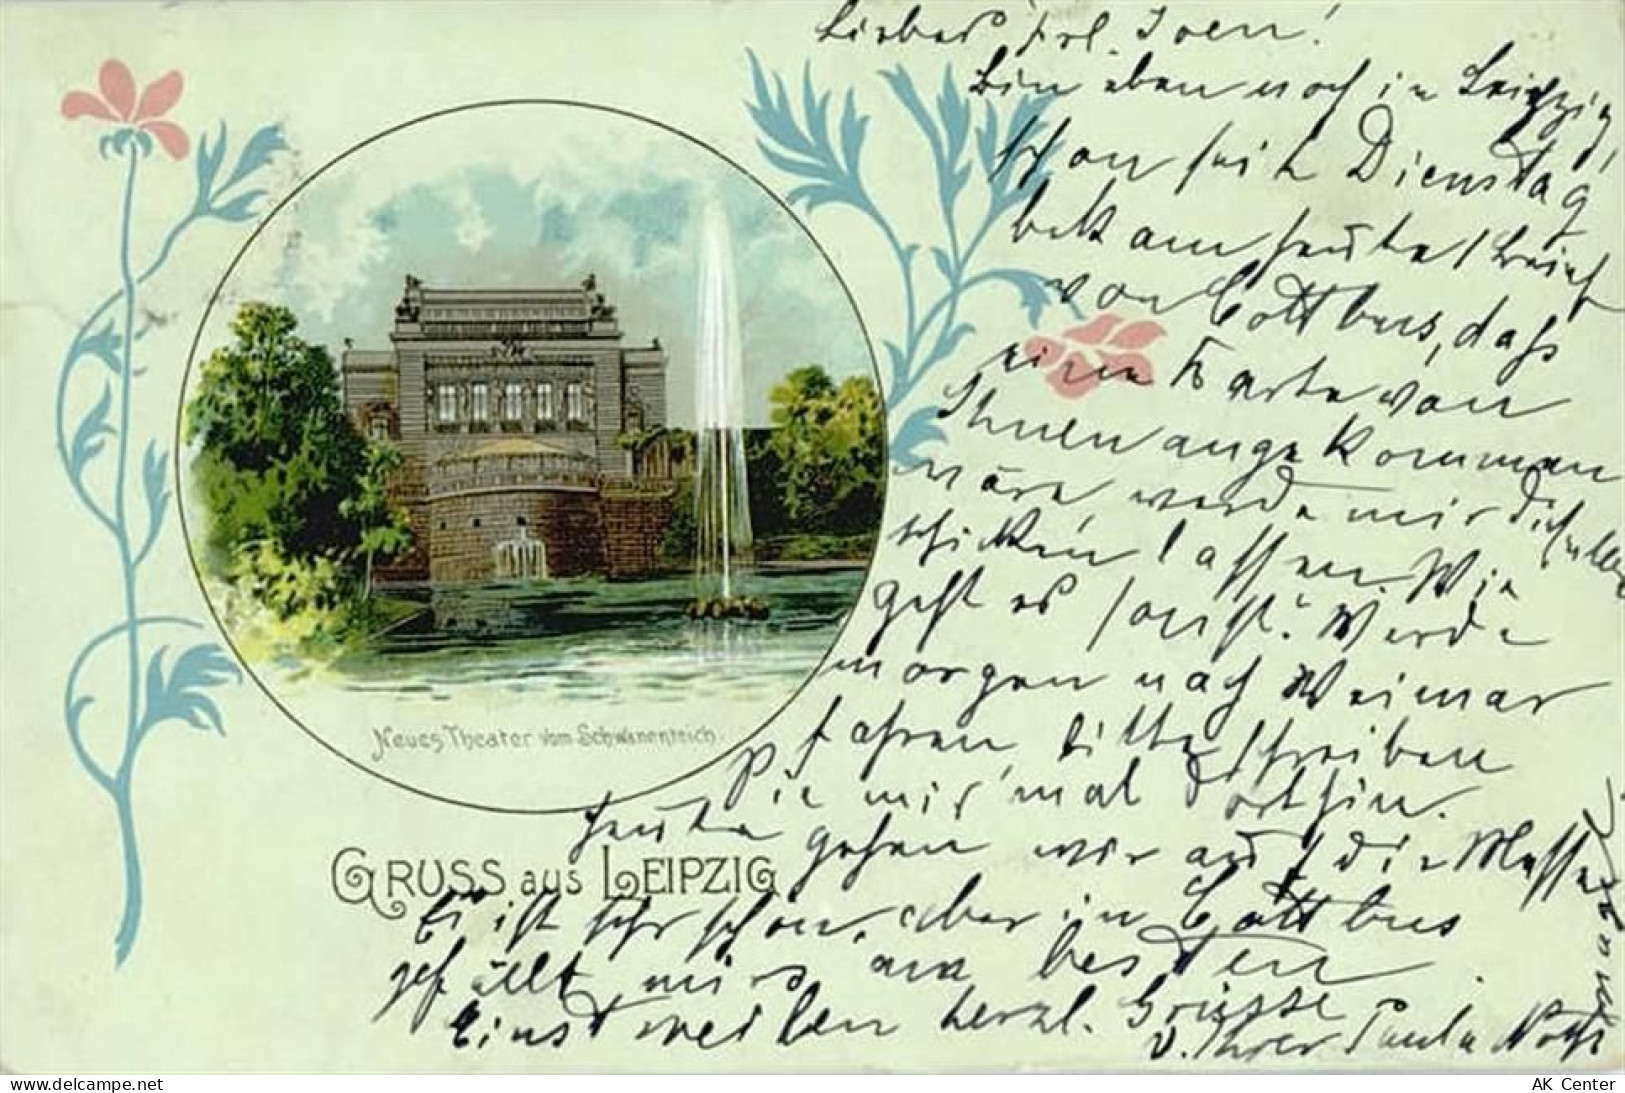 Liebes Frl.
Bin eben noch in Leipzig,
schon seit Dienstag
bekam heute 1 Brief
von Cottbus, daß
eine Karte von
Ihnen angekommen
wäre, werde mir dieselbe
schicken lassen. Wie
geht es sonst? Werde
morgen nach Weimar
fahren, bitte schreiben
Sie mir mal dorthin.
Heute gehen wir auf die Messe
Es ist sehr schön, aber in Cottbus
gefällt mirs am besten
Einstweilen herzl. Grüsse
v. Ihrer Paula
Neues Theater vom Schwanenteich.
GRUSS aus LEIPZIG
AK Center
www.delcampe.net